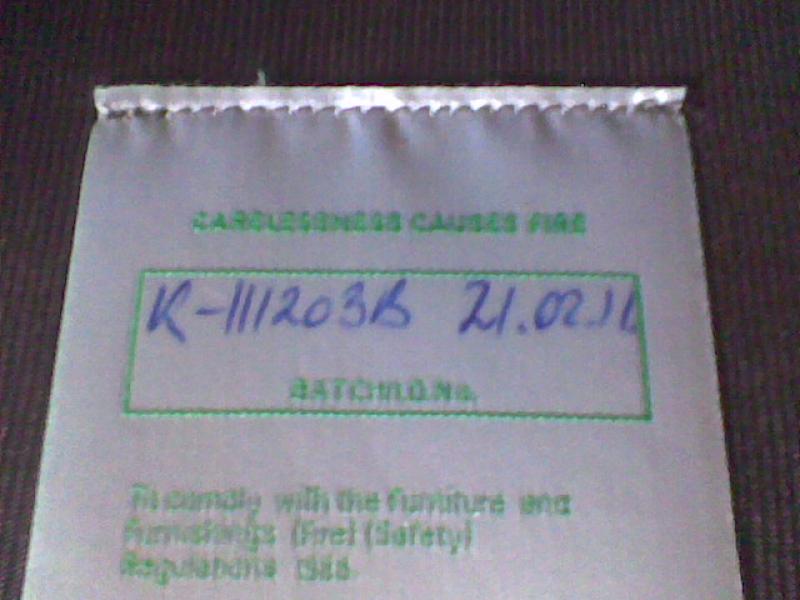 CARELESSNESS CAUSES FIRE
K-111203B 21.02.11
BATCH/I.D.No.
To comply with the Furniture and
Furnishings (Fire) (Safety)
Regulations 1988